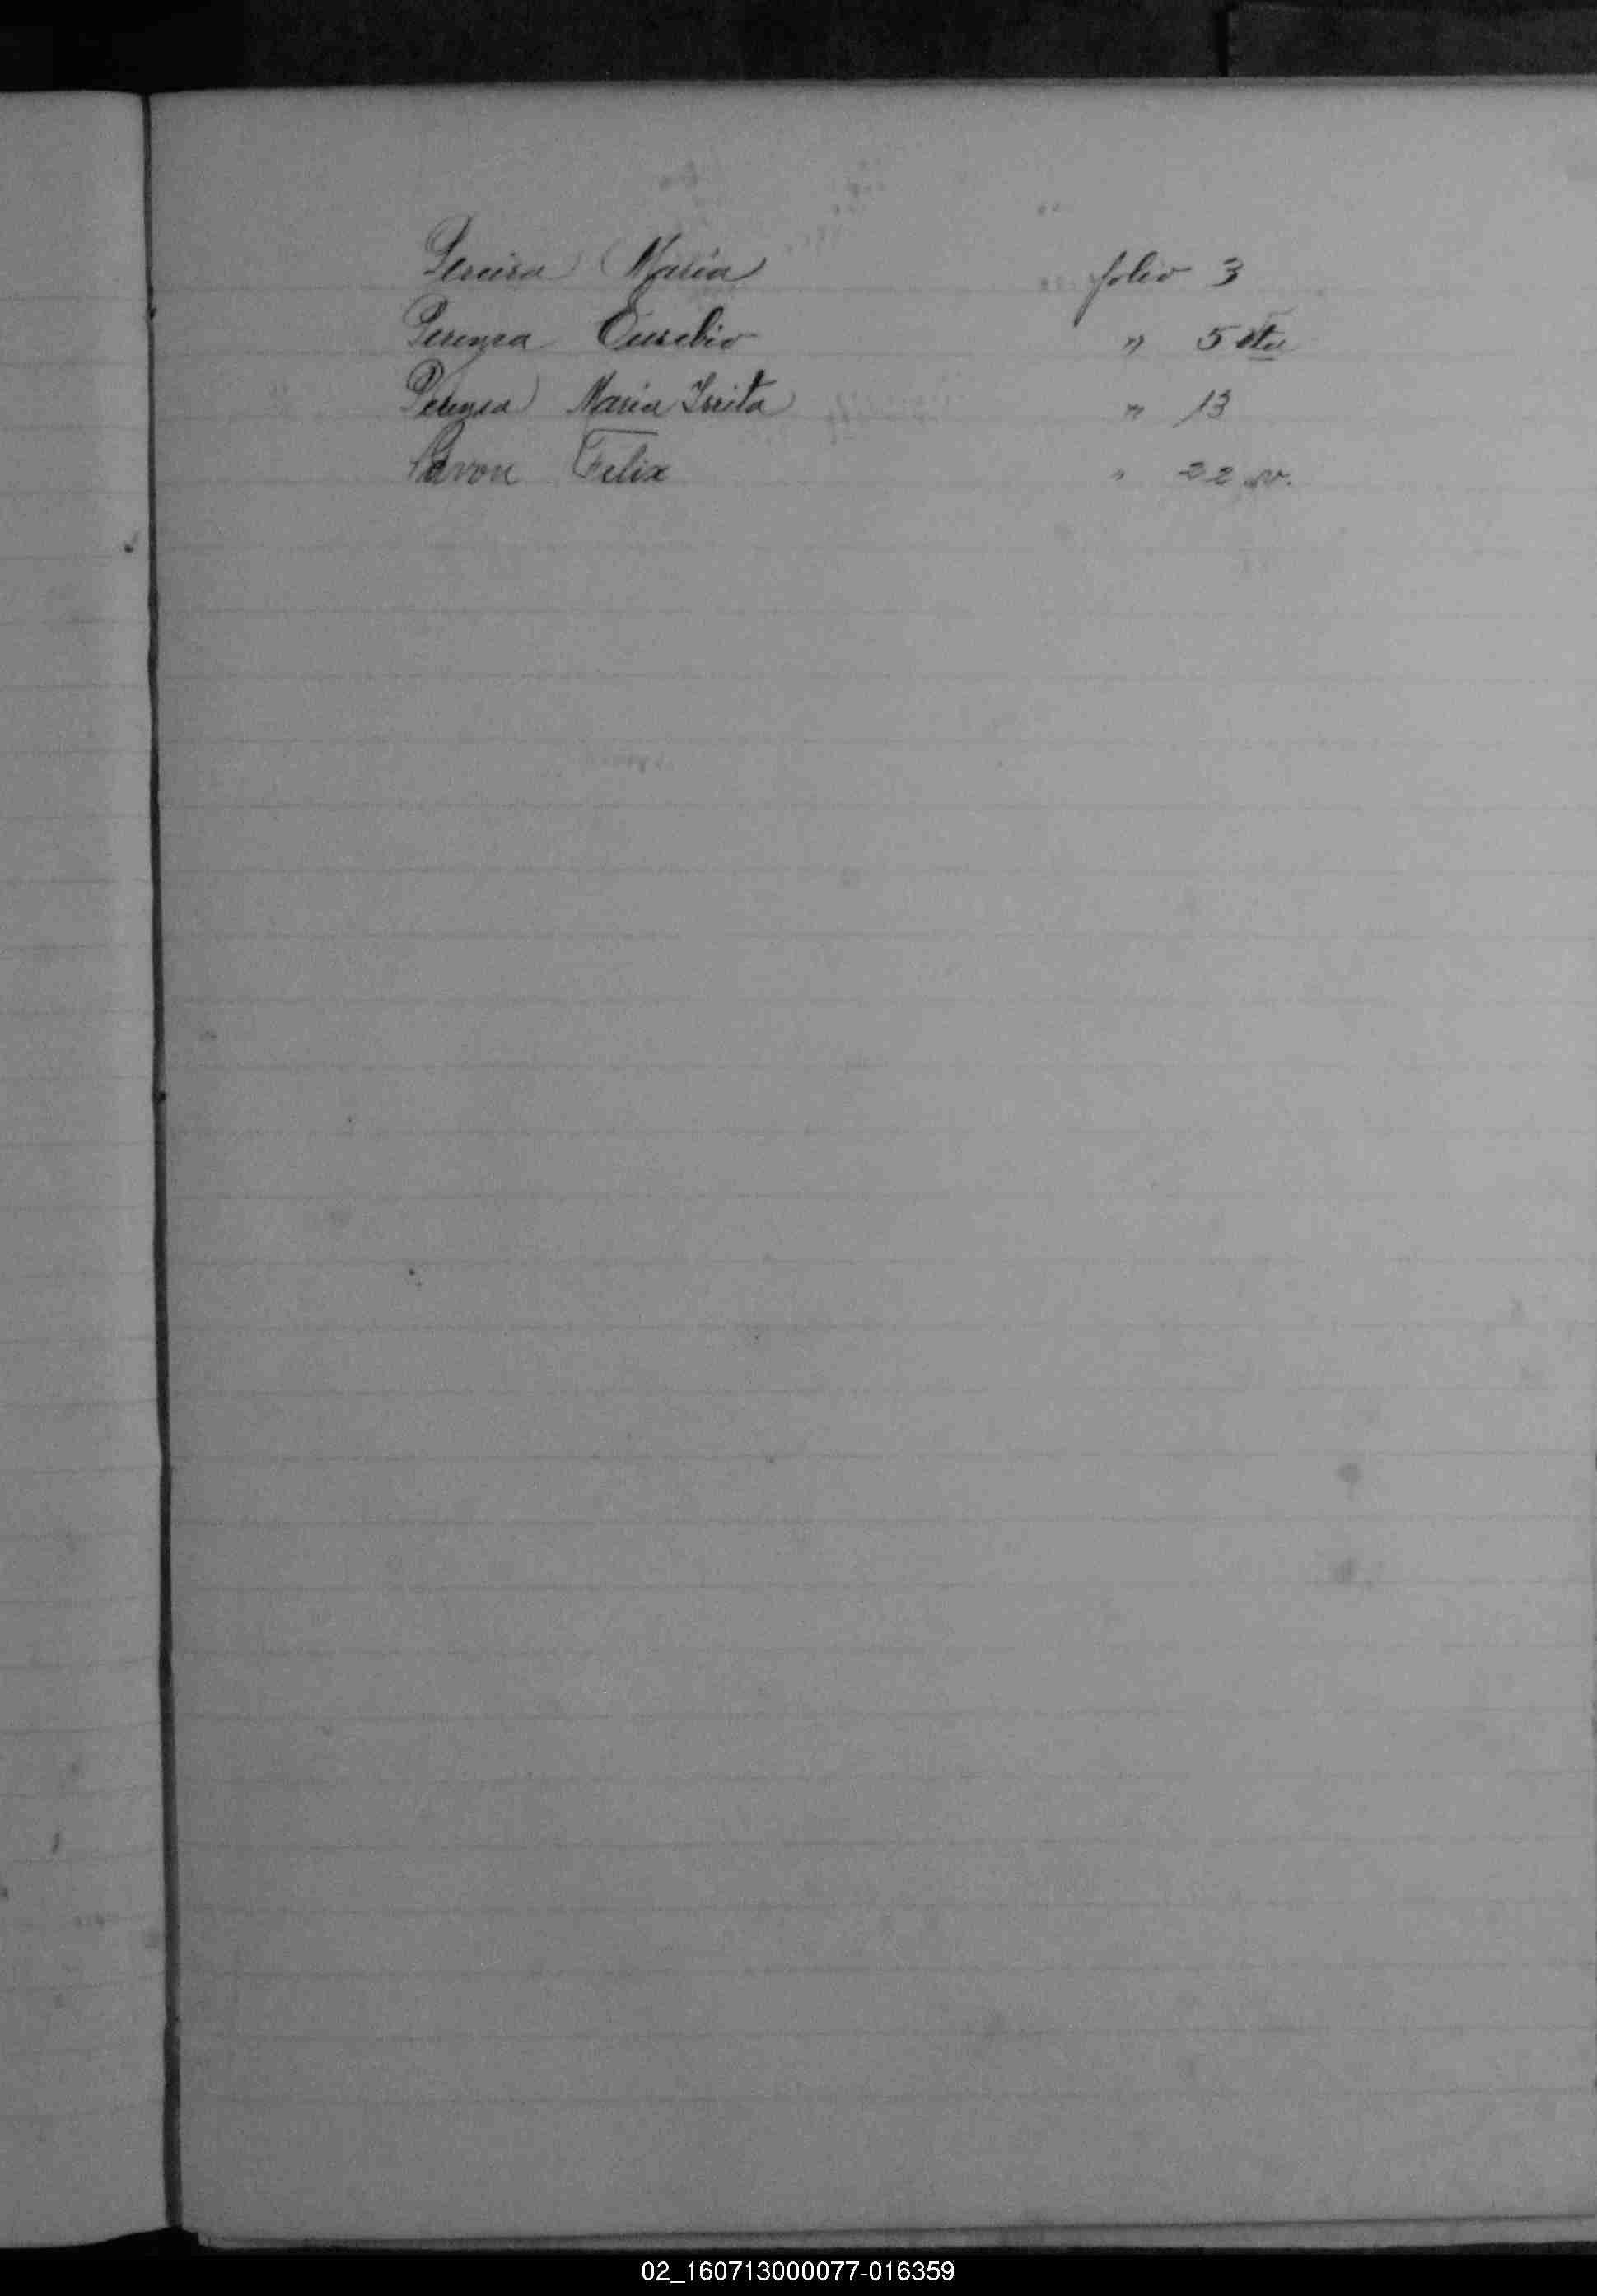 Pereira Maria folio 3
Pereyra Eusebio " 5 vta
Pereyra Maria Isrita " 13
Pavon Felix " 22 v.
02_160713000077-016359